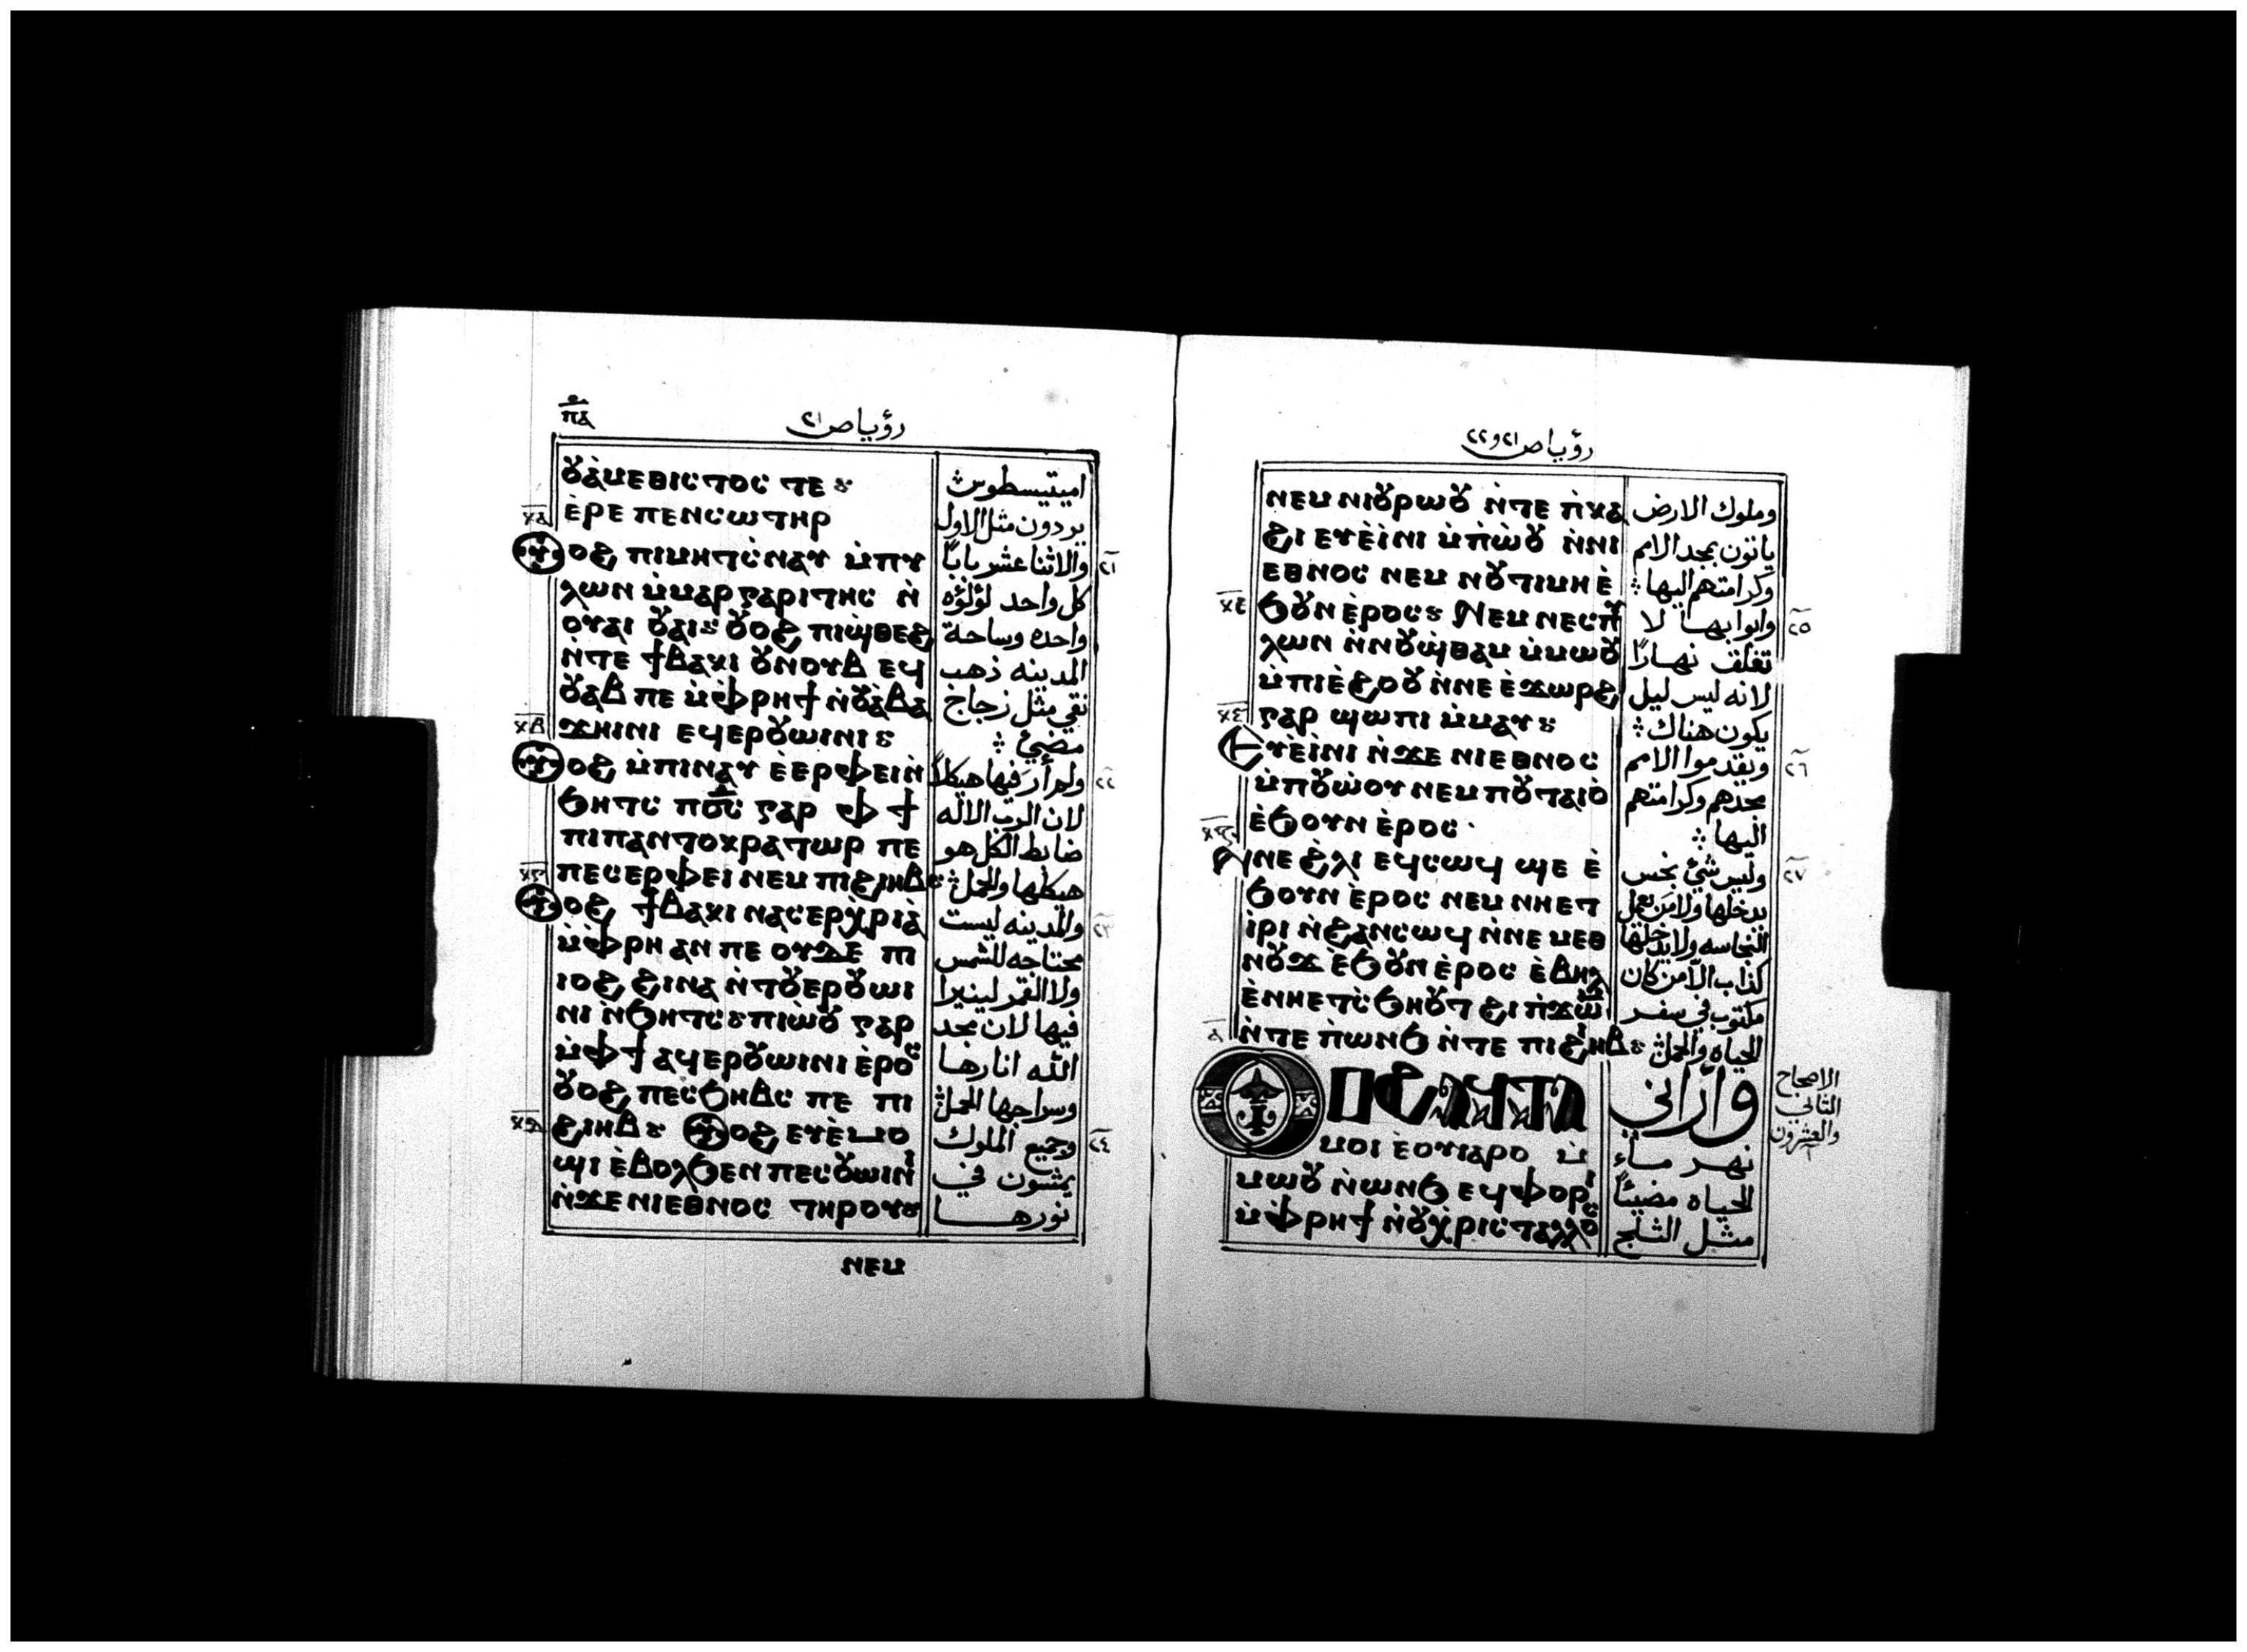 ⲡ̅ⲁ̅
رؤيا ص ٢١
ⲟⲩⲁ̀ⲙⲉⲑⲓⲥⲧⲟⲥ ⲧⲉ
ⲉ̀ⲣⲉ ⲡⲉⲛⲥⲱⲧⲏⲣ
ⲟⲩⲟϩ ⲡⲓⲙⲏⲧⲥ̀ⲛⲁⲩ ⲙ̀ⲡⲩ
ⲗⲱⲛ ⲙ̀ⲙⲁⲣⲅⲁⲣⲓⲧⲏⲥ ⲛ̀
ⲟⲩⲁⲓ ⲟⲩⲁⲓ ⲟⲩⲟϩ ⲡⲓϣ̀ⲑⲉϩ
ⲛ̀ⲧⲉ ϯⲃⲁⲕⲓ ⲟⲩⲛⲟⲩⲃ ⲉϥ
ⲟⲩⲁⲃ ⲡⲉ ⲙ̀ⲫ̀ⲣⲏϯ ⲛ̀ⲟⲩⲁ̀ⲃⲁ
ϫⲏⲓⲛⲓ ⲉϥⲉⲣⲟⲩⲱⲓⲛⲓ
ⲟⲩⲟϩ ⲙ̀ⲡⲓⲛⲁⲩ ⲉ̀ⲉⲣⲫⲉⲓ ⲛ̀
ϧⲏⲧⲥ ⲡϭⲥ ⲅⲁⲣ ⲫϯ
ⲡⲓⲡⲁⲛⲧⲟⲕⲣⲁⲧⲱⲣ ⲡⲉ
ⲡⲉⲥⲉⲣⲫⲉⲓ ⲛⲉⲙ ⲡⲓϩⲓⲏⲃ
ⲟⲩⲟϩ ϯⲃⲁⲕⲓ ⲛⲁⲥⲉⲣⲭ̀ⲣⲓⲁ̀
ⲙ̀ⲫ̀ⲣⲏ ⲁⲛ ⲡⲉ ⲟⲩⲇⲉ ⲡⲓ
ⲓⲟϩ ϩⲓⲛⲁ ⲛ̀ⲧⲟⲩⲉⲣⲟⲩⲱⲓ
ⲛⲓ ⲛ̀ϧⲏⲧⲥ ⲡⲓⲱ̀ⲟⲩ ⲅⲁⲣ
ⲙ̀ⲫϯ ⲁϥⲉⲣⲟⲩⲱⲓⲛⲓ ⲉ̀ⲣⲟⲥ
ⲟⲩⲟϩ ⲡⲉⲥϧⲏⲃⲥ ⲡⲉ ⲡⲓ
ϩⲓⲏⲃ ⲟⲩⲟϩ ⲉⲩⲉ̀ⲙⲟ
ϣⲓ ⲉ̀ⲃⲟⲗϧⲉⲛ ⲡⲉⲥⲟⲩⲱⲓⲛⲓ
ⲛ̀ϫⲉ ⲛⲓⲉⲑⲛⲟⲥ ⲧⲏⲣⲟⲩ
ⲛⲉⲙ
اميتيسطوس
يردون مثل الاول
٢١ والاثنا عشر بابًا
كل واحد لؤلؤه
واحده وساحة
المدينه ذهب
نقي مثل زجاج
مضيئ
٢٢ ولم أر فيها هيكلاً
لان الرب الاله
ضابط الكل هو
هيكلها والحمل
٢٣ والمدينه ليست
محتاجه للشمس
ولا القمر لينيرا
فيها لان مجد
الله انارها
وسراجها الحمل
٢٤ وجميع الملوك
يمشون في
نورها
رؤيا ص ٢١ و ٢٢
ⲛⲉⲙ ⲛⲓⲟⲩⲣⲱⲟⲩ ⲛ̀ⲧⲉ ⲡ̀ⲕⲁ
ϩⲓ ⲉⲩⲉ̀ⲓ̀ⲛⲓ ⲙ̀ⲡ̀ⲱ̀ⲟⲩ ⲛ̀ⲛⲓ
ⲉⲑⲛⲟⲥ ⲛⲉⲙ ⲛⲟⲩⲧⲓⲙⲏ ⲉ̀
ϧⲟⲩⲛ ⲉ̀ⲣⲟⲥ Ⲛⲉⲙ ⲛⲉⲥⲡⲩ
ⲗⲱⲛ ⲛ̀ⲛⲟⲩϣ̀ⲑⲁⲙ ⲙ̀ⲙⲱⲟⲩ
ⲙ̀ⲡⲓⲉ̀ϩⲟⲟⲩ ⲛ̀ⲛⲉ ⲉ̀ϫⲱⲣϩ
ⲅⲁⲣ ϣⲱⲡⲓ ⲙ̀ⲙⲁⲩ
Ⲉⲩⲉ̀ⲓⲛⲓ ⲛ̀ϫⲉ ⲛⲓⲉⲑⲛⲟⲥ
ⲙ̀ⲡⲟⲩⲱ̀ⲟⲩ ⲛⲉⲙ ⲡⲟⲩⲧⲁⲓⲟ̀
ⲉ̀ϧⲟⲩⲛ ⲉ̀ⲣⲟⲥ
Ⲛⲛⲉ ϩ̀ⲗⲓ ⲉϥⲥⲱϥ ϣⲉ ⲉ̀
ϧⲟⲩⲛ ⲉ̀ⲣⲟⲥ ⲛⲉⲙ ⲛⲏⲉⲧ
ⲓ̀ⲣⲓ ⲛ̀ϩⲁⲛⲥⲱϥ ⲛ̀ⲛⲉ ⲙⲉⲑ
ⲛⲟⲩϫ ⲉ̀ϧⲟⲩⲛ ⲉ̀ⲣⲟⲥ ⲉ̀ⲃⲏⲗ
ⲉ̀ⲛⲏⲉⲧⲥ̀ϧⲏⲟⲩⲧ ϩⲓ ⲡ̀ϫⲱⲙ
ⲛ̀ⲧⲉ ⲡ̀ⲱⲛϧ ⲛ̀ⲧⲉ ⲡⲓϩⲓⲏⲃ
Ⲟⲩⲟϩ ⲁϥⲧⲁ
ⲙⲟⲓ ⲉ̀ⲟⲩⲓⲁⲣⲟ ⲙ̀
ⲙⲱⲟⲩ ⲛ̀ⲱⲛϧ ⲉϥⲫⲟⲣⲓ
ⲙ̀ⲫ̀ⲣⲏϯ ⲛ̀ⲟⲩⲭ̀ⲣⲓⲥⲧⲁⲗⲗⲟⲥ
وملوك الارض
ياتون بمجد الامم
وكرامتهم اليها
٢٥ وابوابها لا
تغلق نهارًا
لانه ليس ليل
يكون هناك
٢٦ ويقدموا الامم
مجدهم وكرامتهم
اليها
٢٧ وليس شيئ نجس
يدخلها ولا من يعمل
النجاسه ولا يدخلها
كذاب الا من كان
مكتوب في سفر
الحياه والحمل
وأراني
الاصحاح
الثاني
والعشرون
نهر ماء
الحياه مضيئًا
مثل الثلج